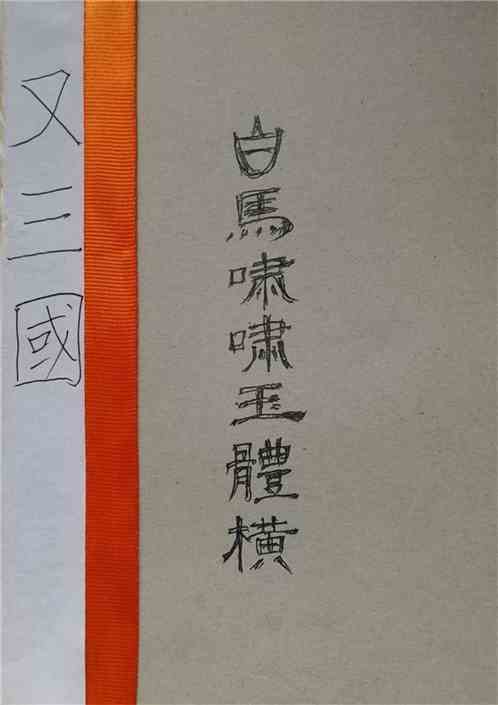 又三國
白馬嘯嘯玉體橫